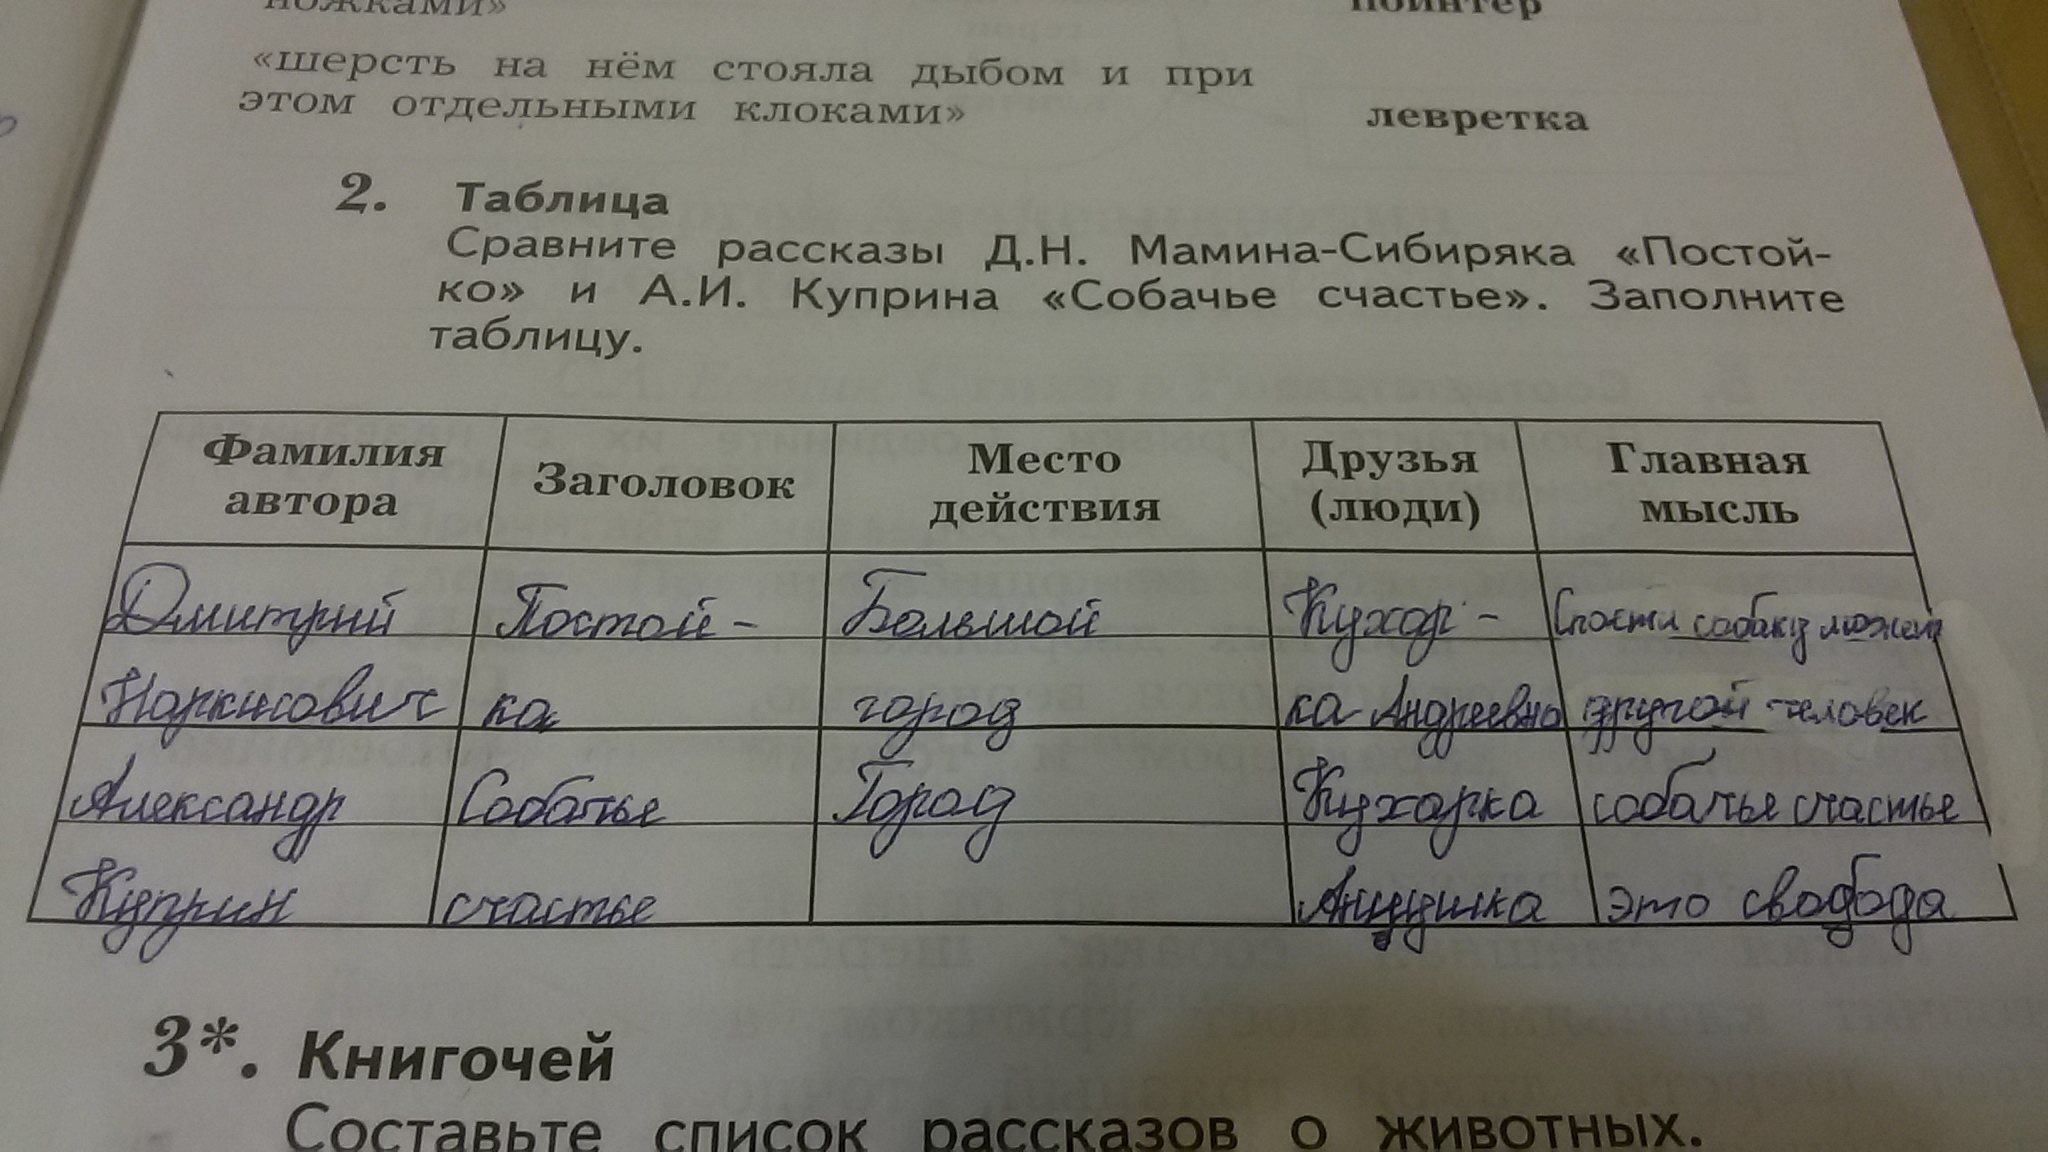 ножками» пойнтер
«шерсть на нём стояла дыбом и при
этом отдельными клоками» левретка
2. Таблица
Сравните рассказы Д.Н. Мамина-Сибиряка «Постой-
ко» и А.И. Куприна «Собачье счастье». Заполните
таблицу.
Фамилия автора Заголовок Место действия Друзья (люди) Главная мысль
Дмитрий Постой- Большой Кухар- Спасти собаку может
Наркисович ка город ка Андреевна другой человек
Александр Собачье Город Кухарка собачья счастье
Куприн счастье Аннушка это свобода
3*. Книгочей
Составьте список рассказов о животных.